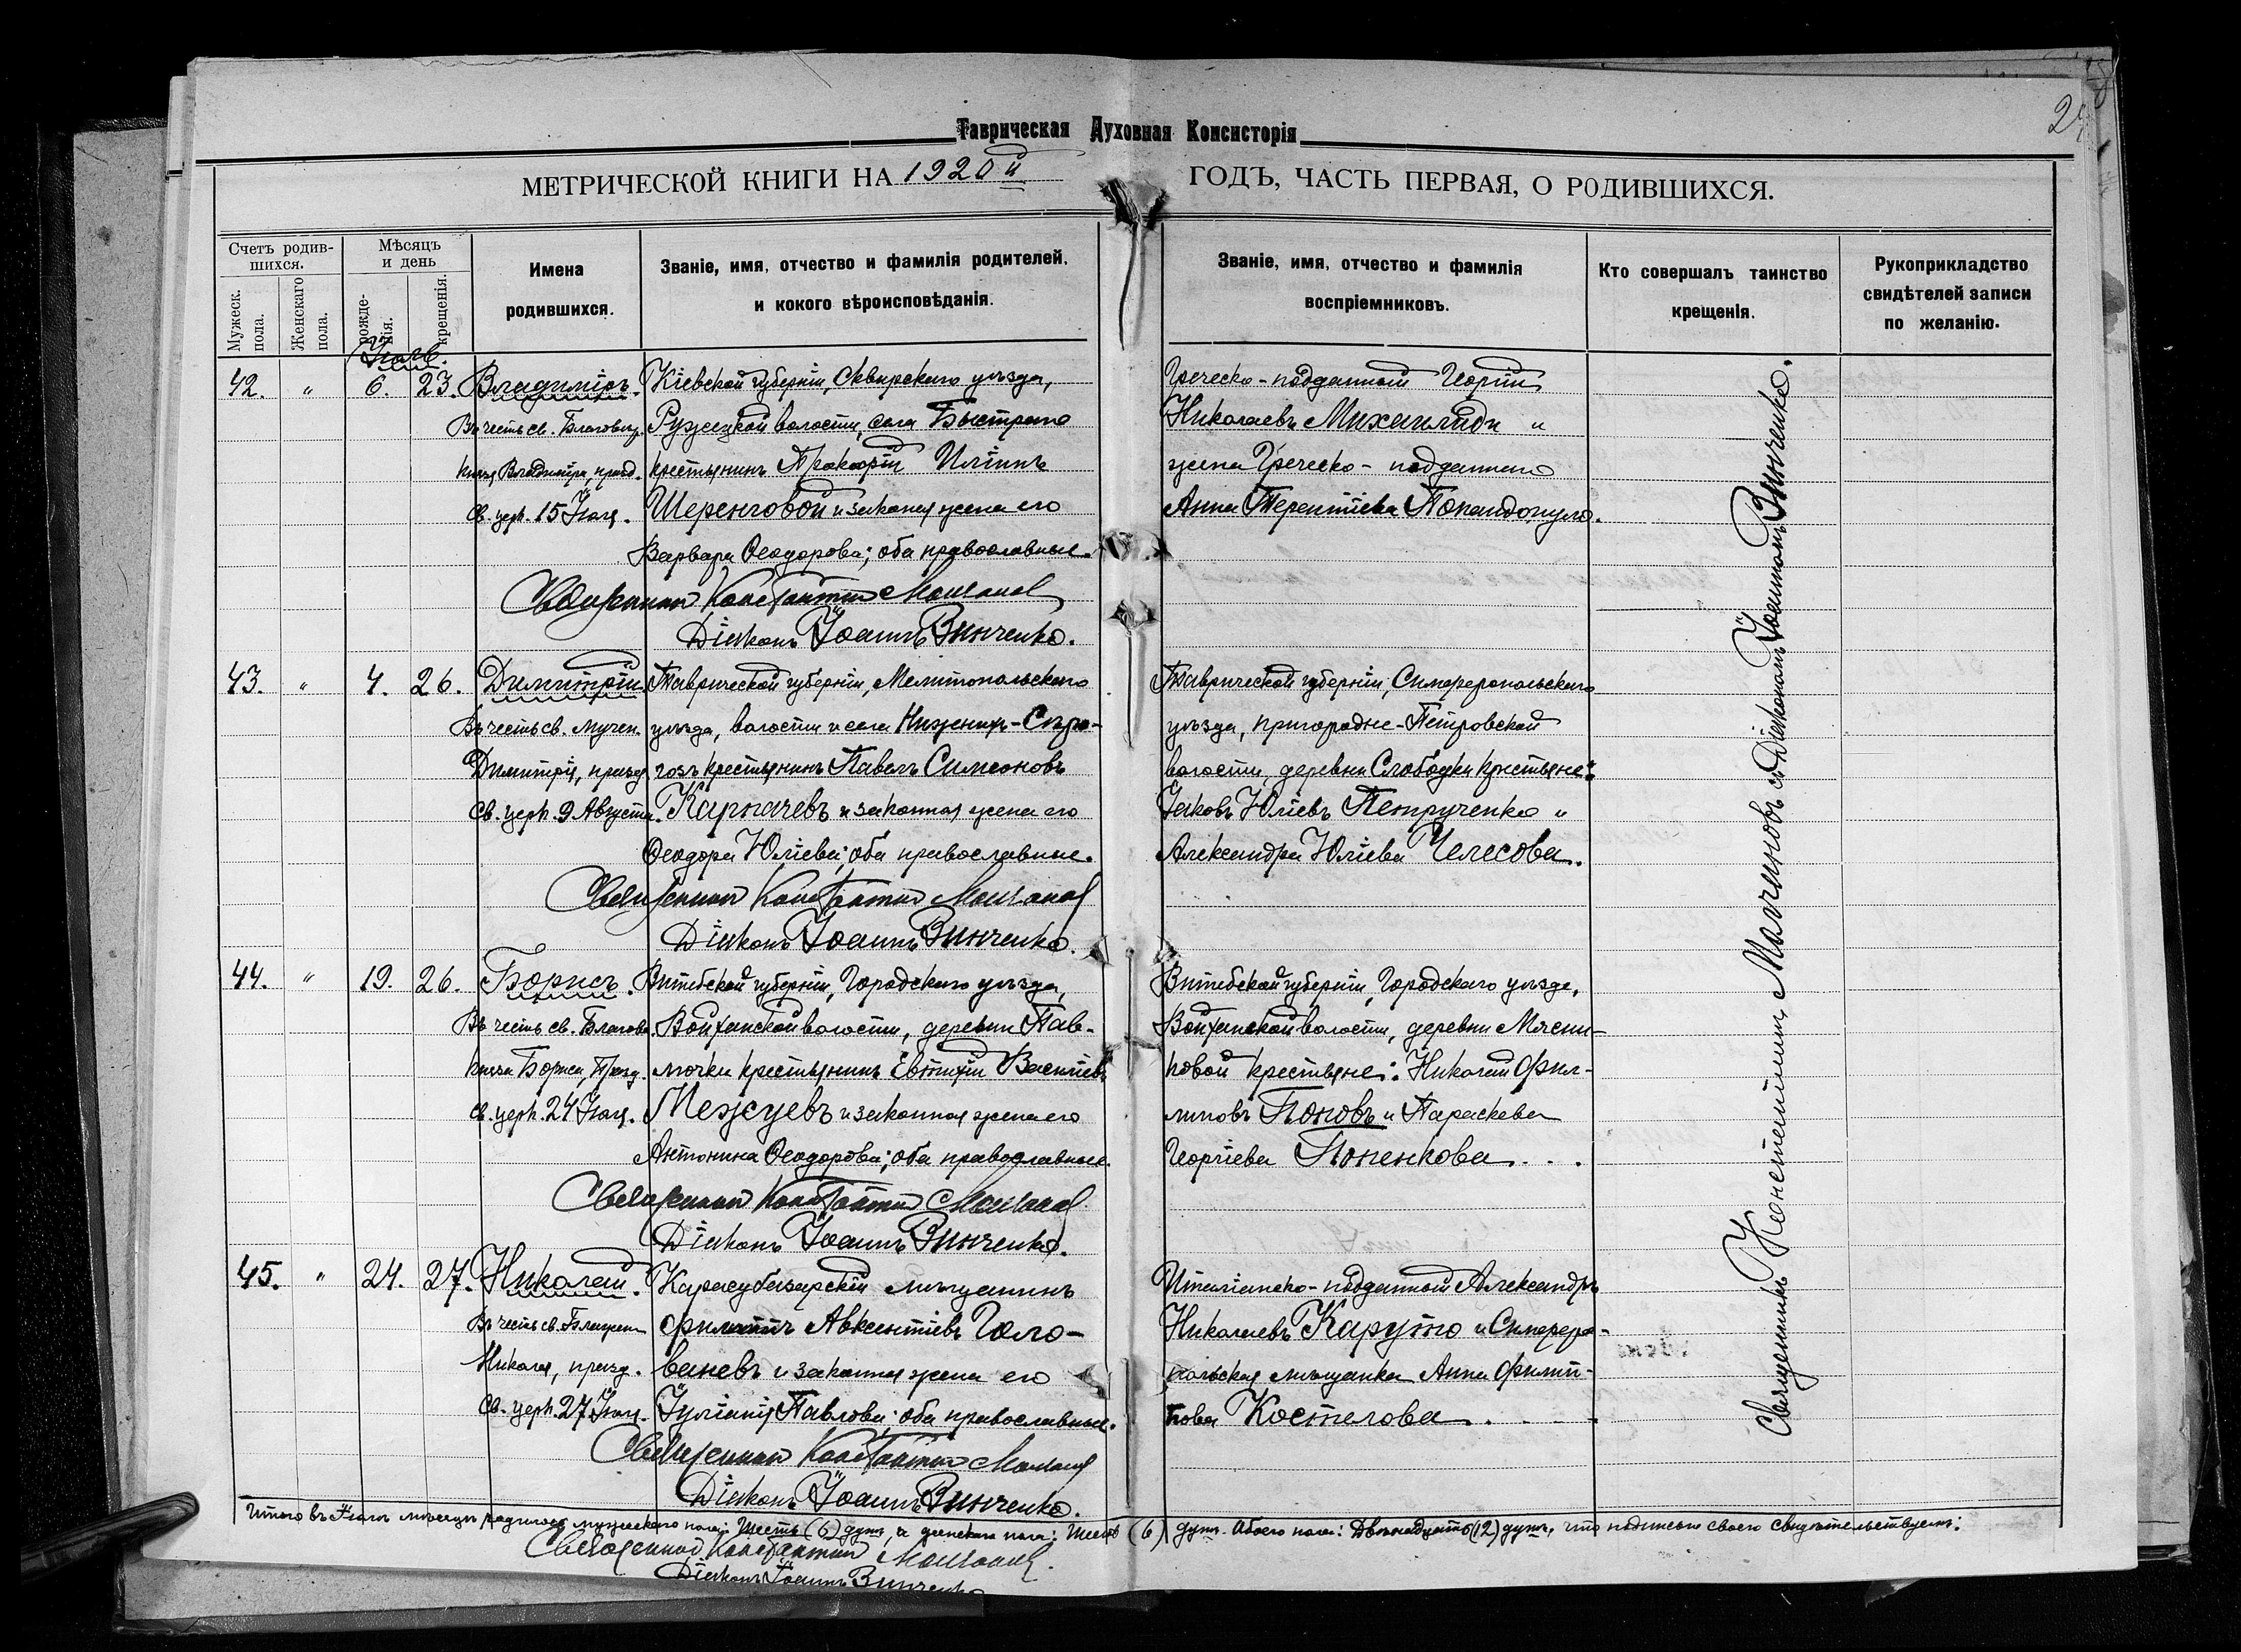 Таврическая Духовная Консисторія
МЕТРИЧЕСКОЙ КНИГИ НА 1920й ГОДЪ, ЧАСТЬ ПЕРВАЯ, О РОДИВШИХСЯ.
Счетъ родив-
шихся.
Мужеск.
пола.
Женскаго
пола.
Мѣсяцъ
и день
рожде-
нія.
крещенія.
Имена
родившихся.
Званіе, имя, отчество и фамилія родителей.
и кокого вѣроисповѣданія.
Званіе, имя, отчество и фамилія
воспріемниковъ.
Кто совершалъ таинство
крещенія.
Рукоприкладство
свидѣтелей записи
по желанію.
42. " 6. 23. Владиміръ. Кіевской губерніи, Сквирскаго уѣзда,
Въ честь св. Благовѣр. Ружицкой волости, села Быстрово
князя Владиміра, празд. крестьянинъ Прокофій Иліинъ
св. церк. 15 Іюля. Шеренговой и законная жена его
Варвара Ѳеодорова; оба православные.
Священникъ Константинъ
Діаконъ Іоаннъ Зинченко.
Греческо-подданный Георгій
Николаевъ Михаилиди и
жена Греческо-подданнаго
Анна Терентіева Попандопуло.
43. " 4. 26. Димитрій. Таврической губерніи, Мелитопольскаго
Въ честь св. мучен. уѣзда, волости и села Нижнихъ-Сѣро-
Димитрія, празд. гозъ крестьянинъ Павелъ Симеоновъ
св. церк. 9 Августа. Карпачевъ и законная жена его
Ѳеодора Юліева; оба православные.
Священникъ Константинъ
Діаконъ Іоаннъ Зинченко.
Таврической губерніи, Симферопольскаго
уѣзда, пригородне-Петровской
волости, деревни Слободки крестьяне:
Іаковъ Юліевъ Петрученко и
Александра Юліева Челесова.
44. " 19. 26. Борисъ. Витебской губерніи, Городскаго уѣзда,
Въ честь св. Благовѣ. Войханской волости, деревни Пав-
князя Бориса, празд. лючки крестьянинъ Евтихій Васильевъ
св. церк. 24 Іюля. Межуевъ и законная жена его
Антонина Ѳеодорова; оба православные.
Священникъ Константинъ
Діаконъ Іоаннъ Зинченко.
Витебской губерніи, Городскаго уѣзда,
Войханской волости, деревни Мясни-
ковой крестьяне: Николай Фил-
иповъ Поповъ и Параскева
Георгіева Попенкова . . .
45. " 24. 27. Николай. Карасубазарскій мѣщанинъ
Въ честь св. Филиппъ Авксентіевъ Голо-
Николая, празд. ваневъ и законная жена его
св. церк. 27 Іюля. Іуліанія Павлова; оба православные.
Священникъ Константинъ
Діаконъ Іоаннъ Зинченко.
Италіанско-подданный Александръ
Николаевъ Каруто и Симферо-
польская мѣщанка Анна Филип-
пова Костелова. . . .
Священникъ Константинъ съ Діакономъ Іоанномъ Зинченко.
Итого въ Іюлѣ мѣсяцѣ родилось мужескаго пола: Шесть (6) душъ, а женскаго пола: Шесть (6) душъ. Обоего пола: Двѣнадцать (12) душъ, что подписью своею свидѣтельствуемъ:
Священникъ Константинъ
Діаконъ Іоаннъ Зинченко